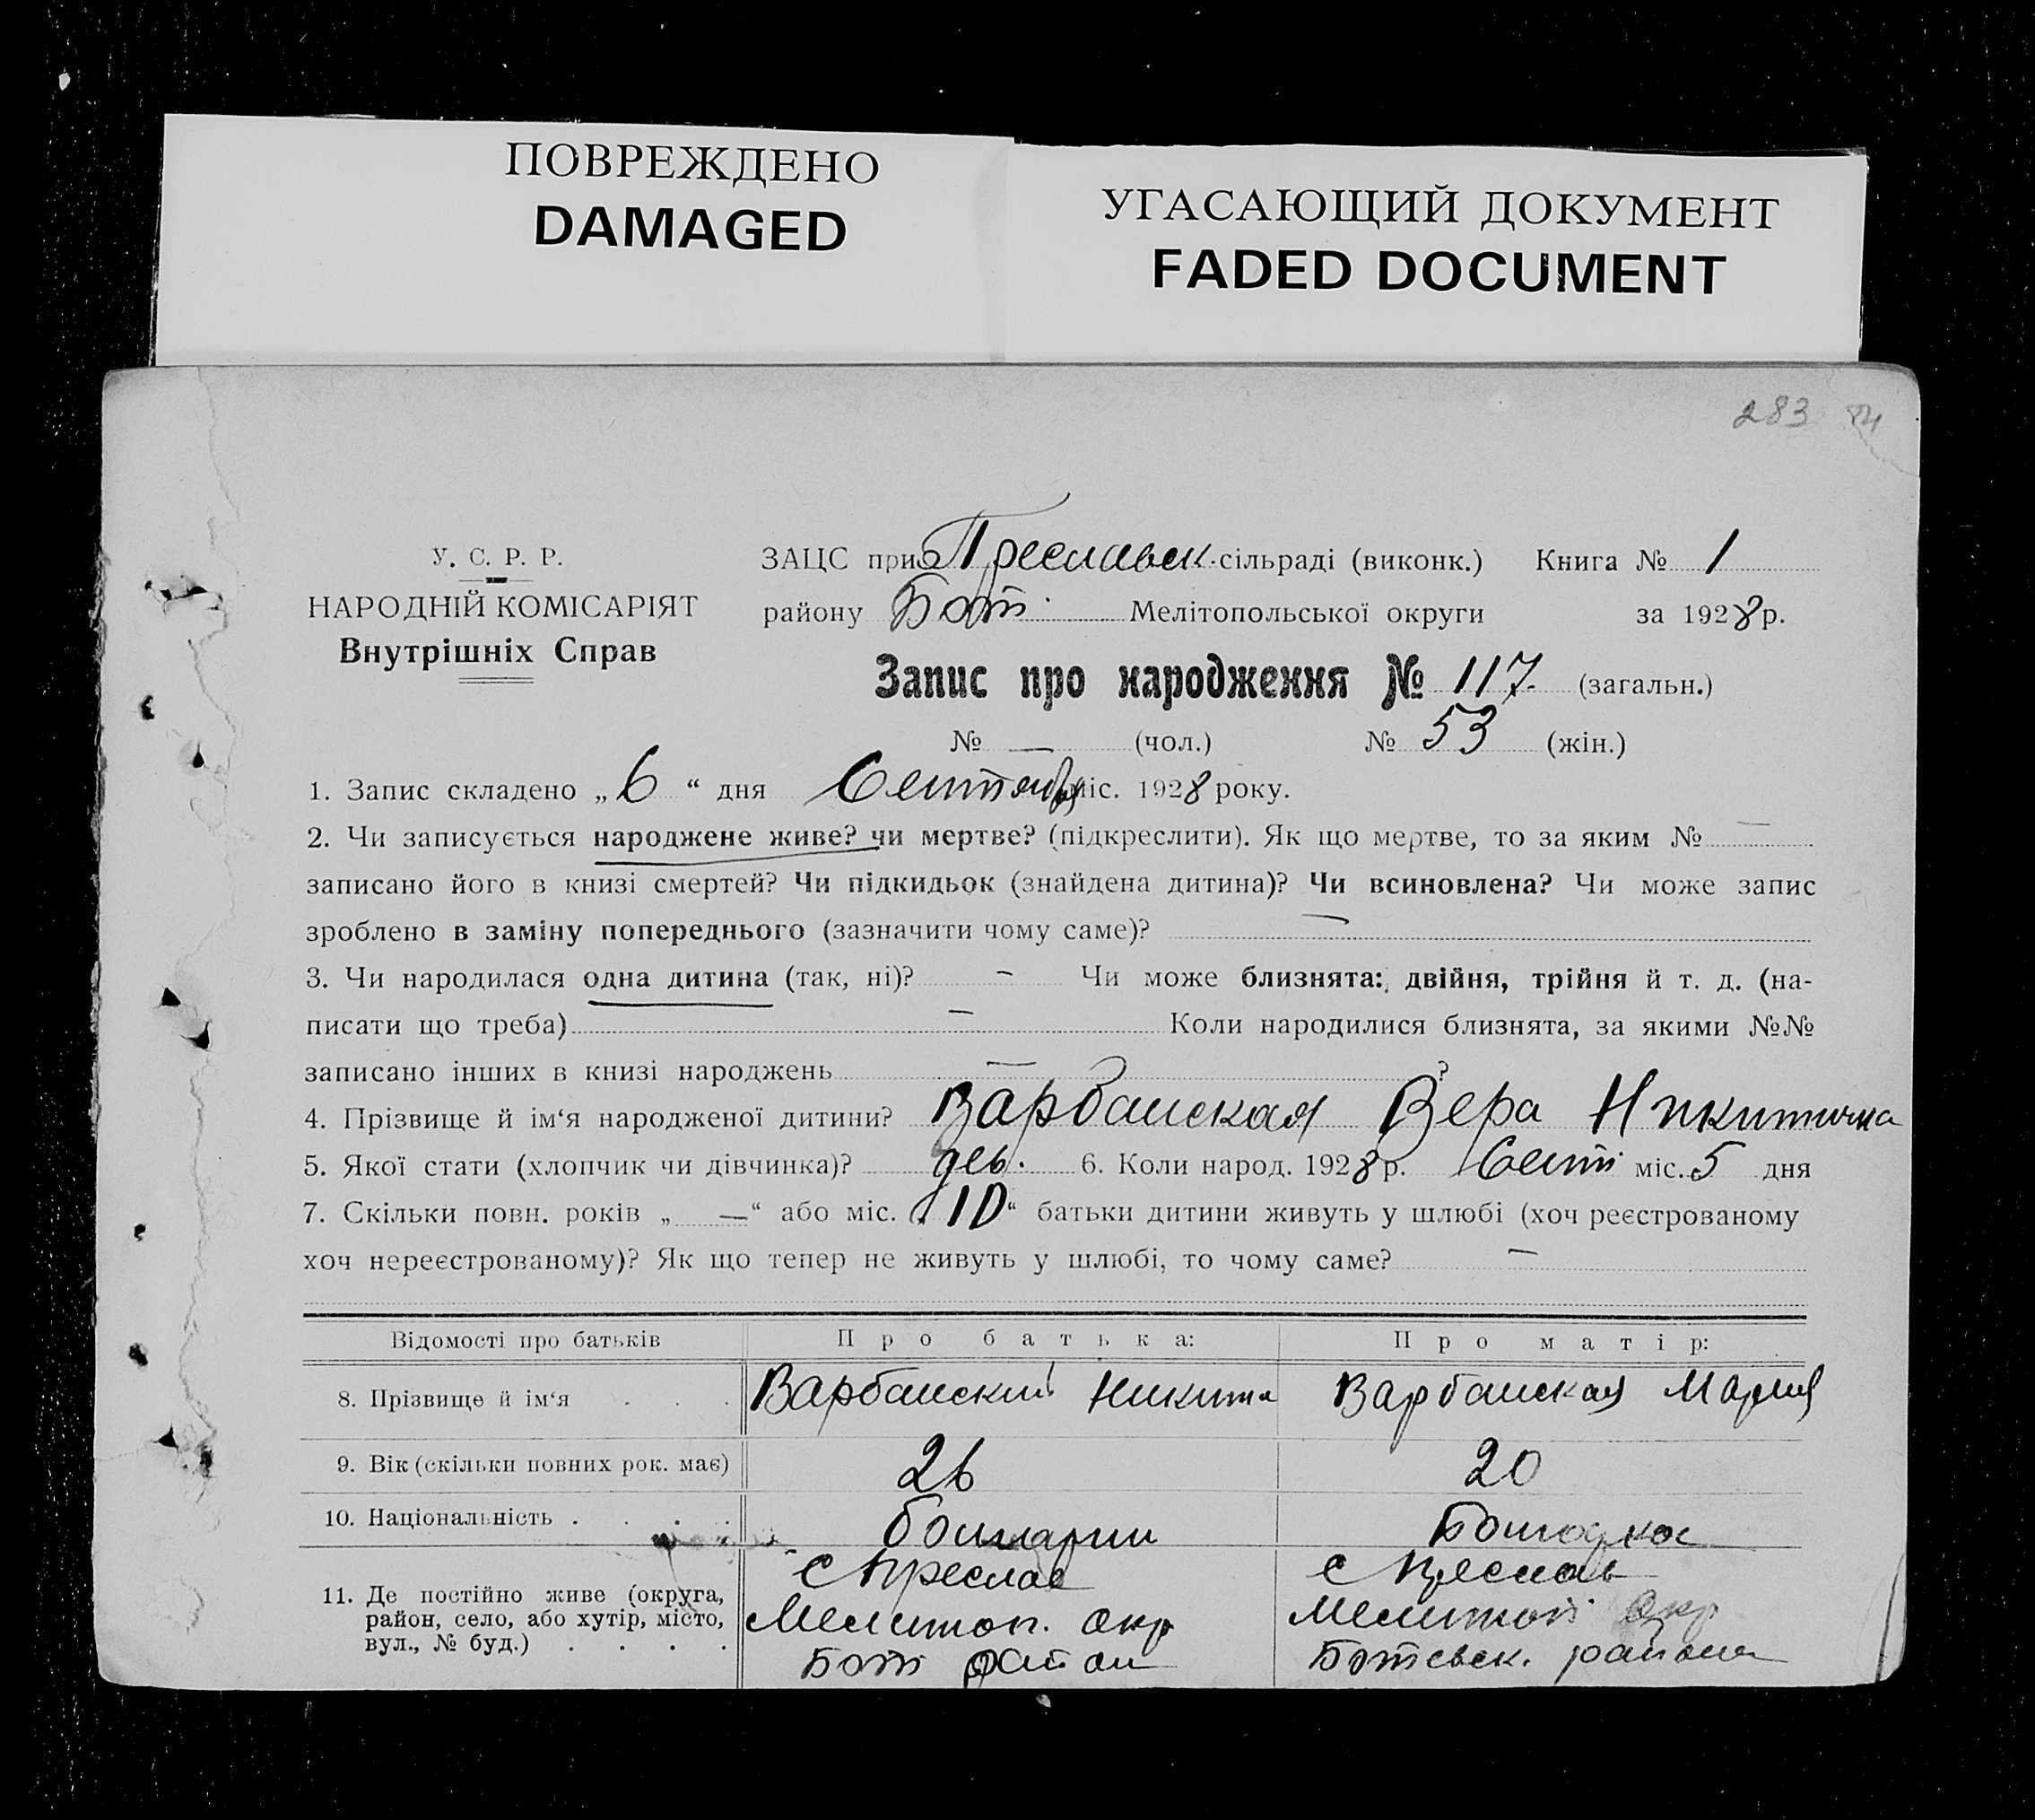 ПОВРЕЖДЕНО
DAMAGED
УГАСАЮЩИЙ ДОКУМЕНТ
FADED DOCUMENT
283
У. С. Р. Р.
НАРОДНІЙ КОМІСАРІЯТ
Внутрішніх Справ
ЗАЦС при Преславск. сільраді (виконк.) Книга № 1
району Бот. Мелітопольської округи за 1928 р.
Запис про народження № 117. (загальн.)
№ — (чол.) № 53 (жін.)
1. Запис складено „6“ дня Сентября міс. 1928 року.
2. Чи записується народжене живе? чи мертве? (підкреслити). Як що мертве, то за яким № —
записано його в книзі смертей? Чи підкидьок (знайдена дитина)? Чи всиновлена? Чи може запис
зроблено в заміну попереднього (зазначити чому саме)? —
3. Чи народилася одна дитина (так, ні)? — Чи може близнята: двійня, трійня й т. д. (на-
писати що треба) — Коли народилися близнята, за якими №№
записано інших в книзі народжень — ?
4. Прізвище й ім‘я народженої дитини? Варбанская Вера Никитична
5. Якої стати (хлопчик чи дівчинка)? дев. 6. Коли народ. 1928 р. Сент. міс. 5 дня
7. Скільки повн. років „—“ або міс. „10“ батьки дитини живуть у шлюбі (хоч реєстрованому
хоч нереєстрованому)? Як що тепер не живуть у шлюбі, то чому саме? —
Відомості про батьків Про батька: Про матір:
8. Прізвище й ім‘я . . . Варбанский Никита Варбанская Мария
9. Вік (скільки повних рок. має) 26 20
10. Національність . . . . болгарин Болгарка
11. Де постійно живе (округа, район, село, або хутір, місто, вул., № буд.) . . . .
с Преслав
Мелитоп. окр
Бот район
с Преслав
Мелитоп окр
Ботевск. района